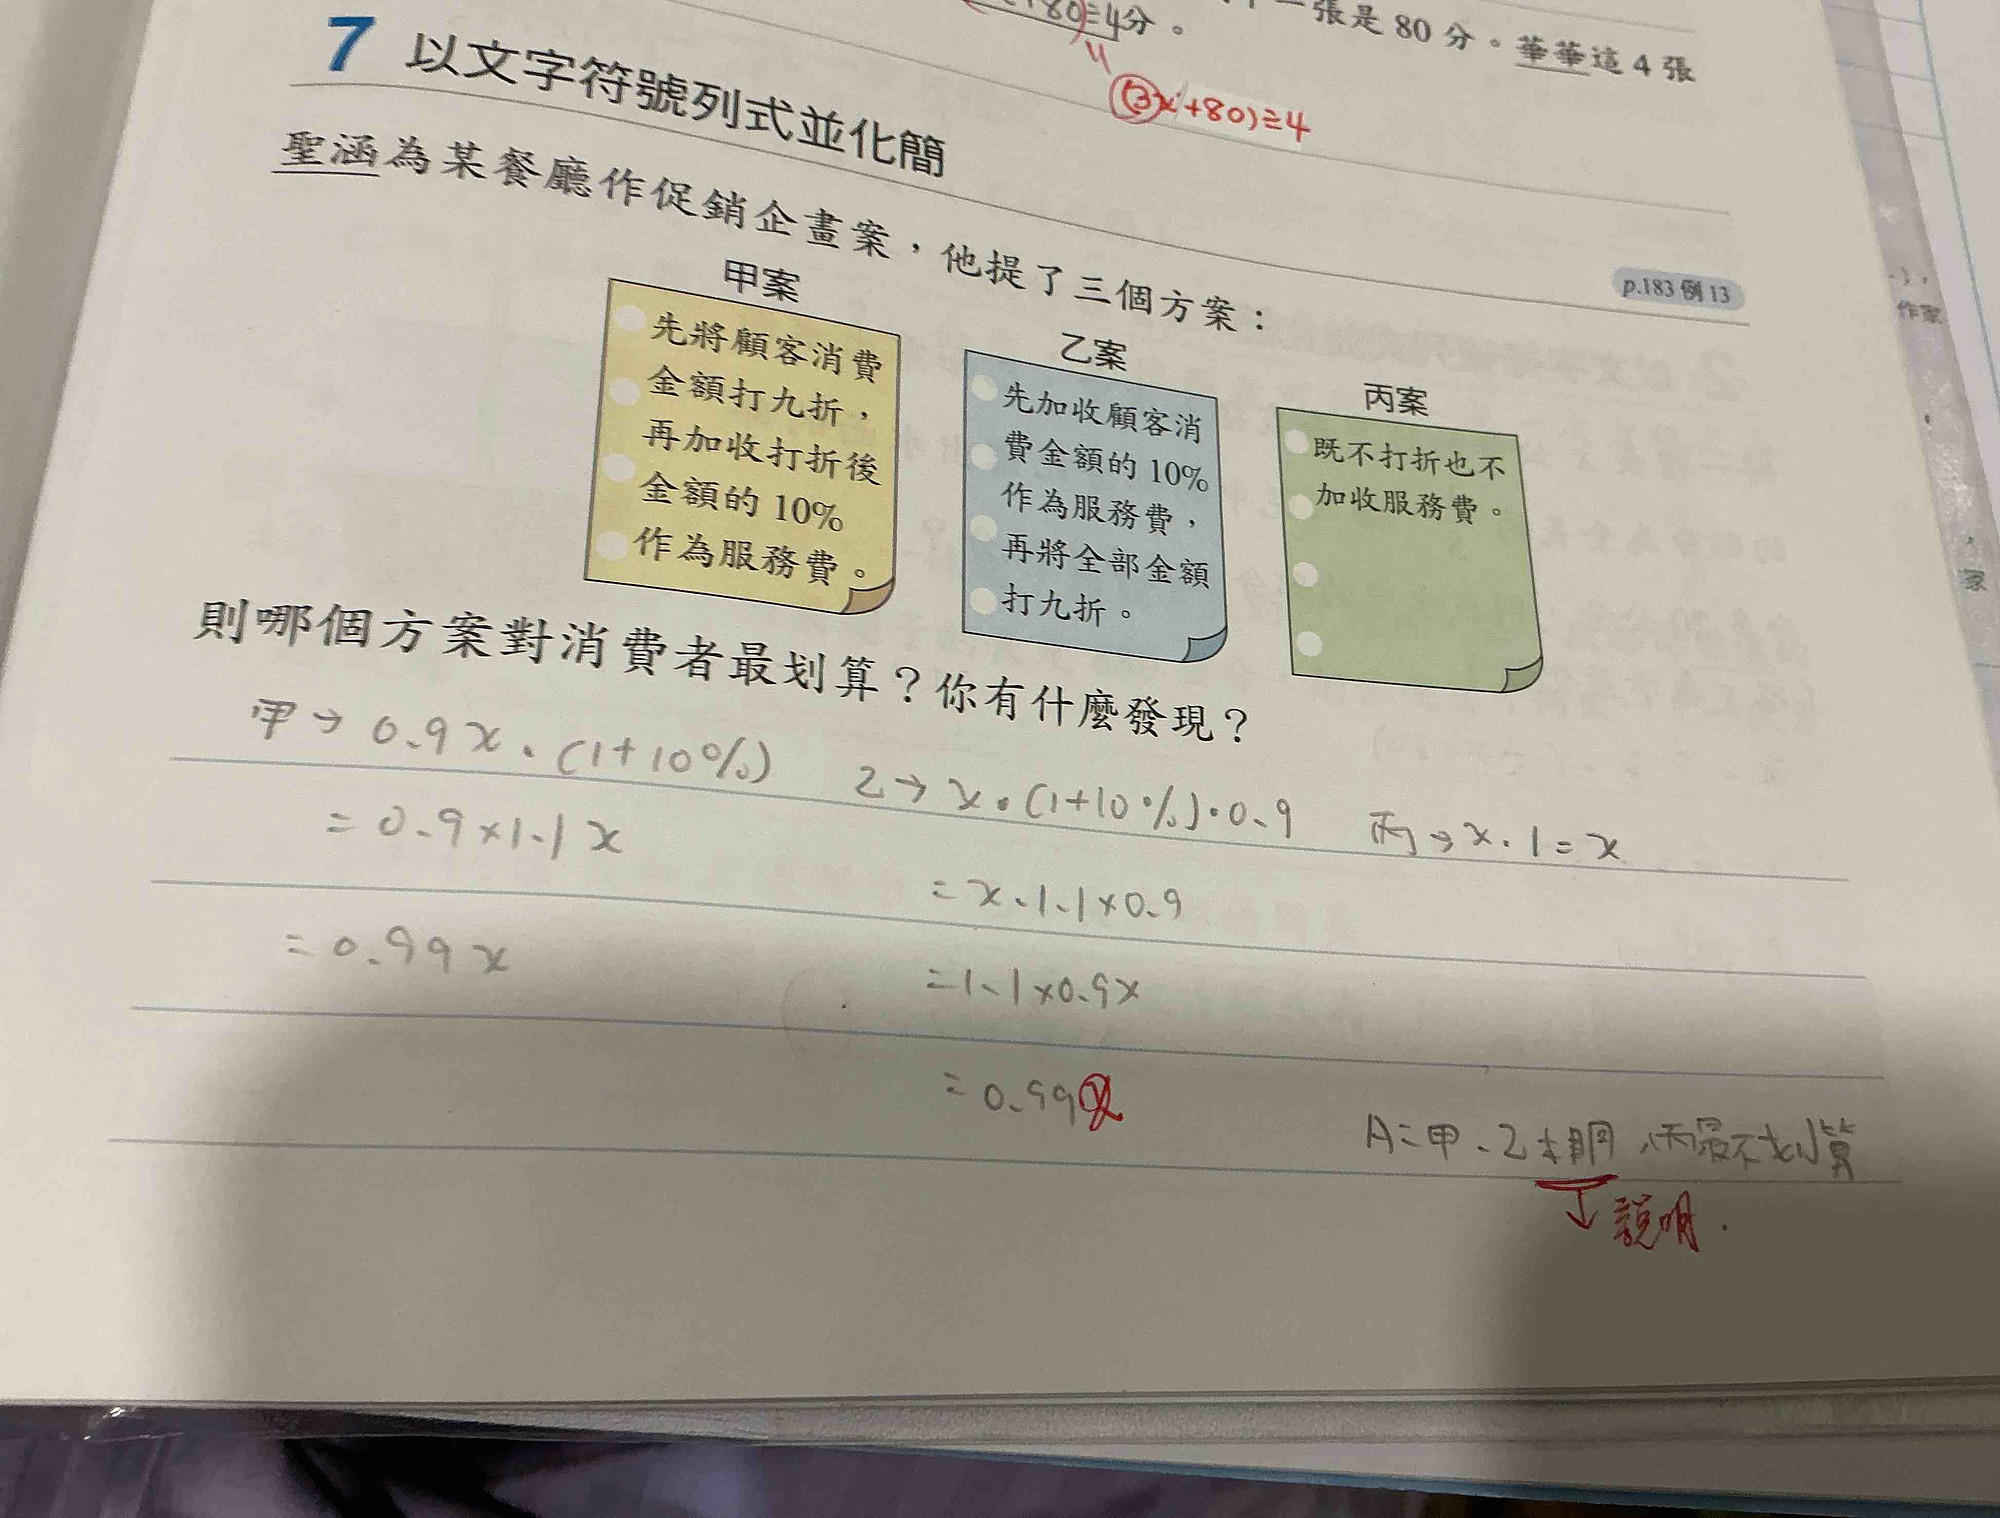 +80)÷4分。
一張是 80 分。華華這 4 張
(3x+80)÷4
7 以文字符號列式並化簡
p.183 例 13
聖涵為某餐廳作促銷企畫案,他提了三個方案:
甲案
先將顧客消費
金額打九折,
再加收打折後
金額的 10%
作為服務費。
乙案
先加收顧客消
費金額的 10%
作為服務費,
再將全部金額
打九折。
丙案
既不打折也不
加收服務費。
則哪個方案對消費者最划算?你有什麼發現?
甲→0.9x·(1+10%)
=0.9×1.1x
=0.99x
乙→x·(1+10%)·0.9
=x·1.1×0.9
=1.1×0.9x
=0.99x
丙→x·1=x
A=甲、乙相同,丙最不划算
說明.
作家
家